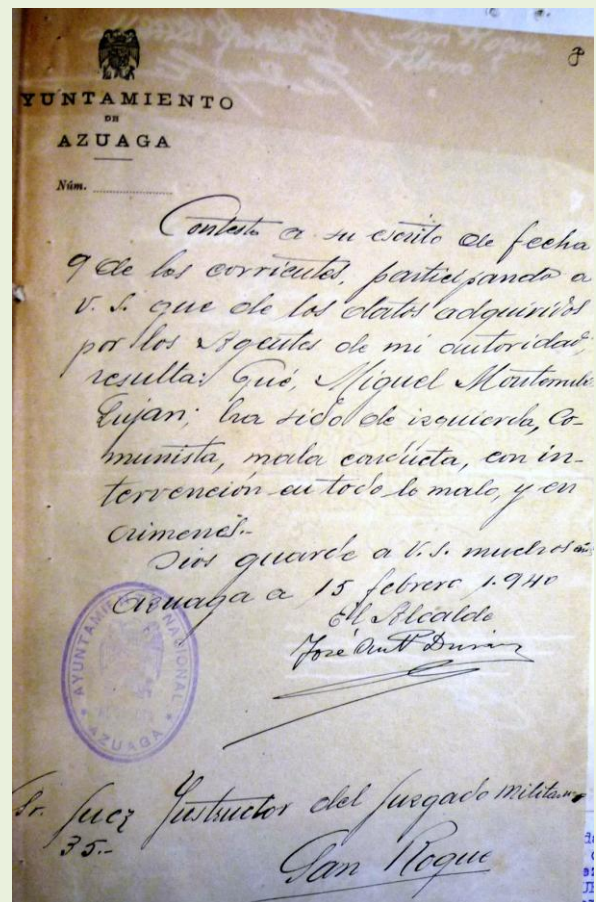 YUNTAMIENTO
DE
AZUAGA
Núm.
Contesto a su escrito de fecha
9 de los corrientes, participando a
V. S. que de los datos adquiridos
por los Agentes de mi autoridad,
resulta: Qué, Miguel
Lujan; ha sido de izquierda, Co-
munista, mala conducta, con in-
tervención en todo lo malo, y en
crimenes.-
Dios guarde a V. S. muchos
Azuaga a 15 febrero 1.940
El Alcalde
José Durán
AYUNTAMIENTO NACIONAL
AZUAGA
Sr. Juez Instructor del Juzgado militar
35.-
San Roque